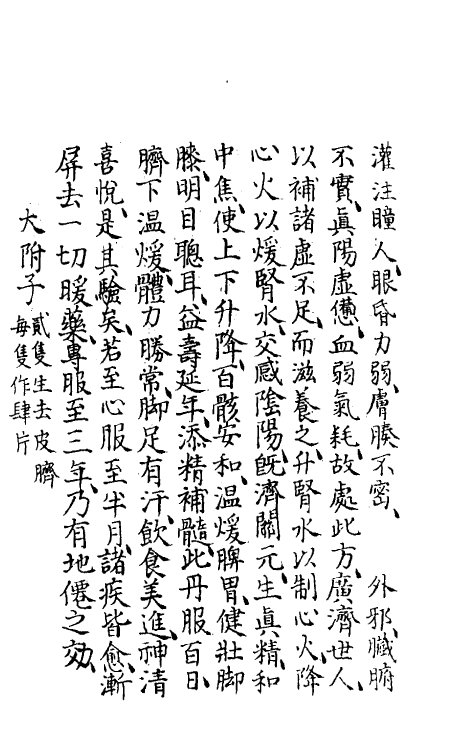 灌注瞳人、眼昏力弱、膚腠不密、　外邪、臟腑
不實、眞陽虛憊、血弱氣耗、故處此方、廣濟世人、
以補諸虛不足、而滋養之、升腎水以制心火、降
心火以煖腎水、交感陰陽、旣濟關元、生眞精和
中焦、使上下升降、百骸安和、温煖脾胃、健壯脚
膝、明目聰耳、益壽延年、添精補髓、此丹服百日、
臍下温煖、體力勝常、脚足有汗、飲食美進、神清
喜悅、是其驗矣、若至心服至半月、諸疾皆愈、漸
屏去一切暖藥、專服至三年、乃有地僊之効、
大附子貳隻生去皮臍
每隻作肆片